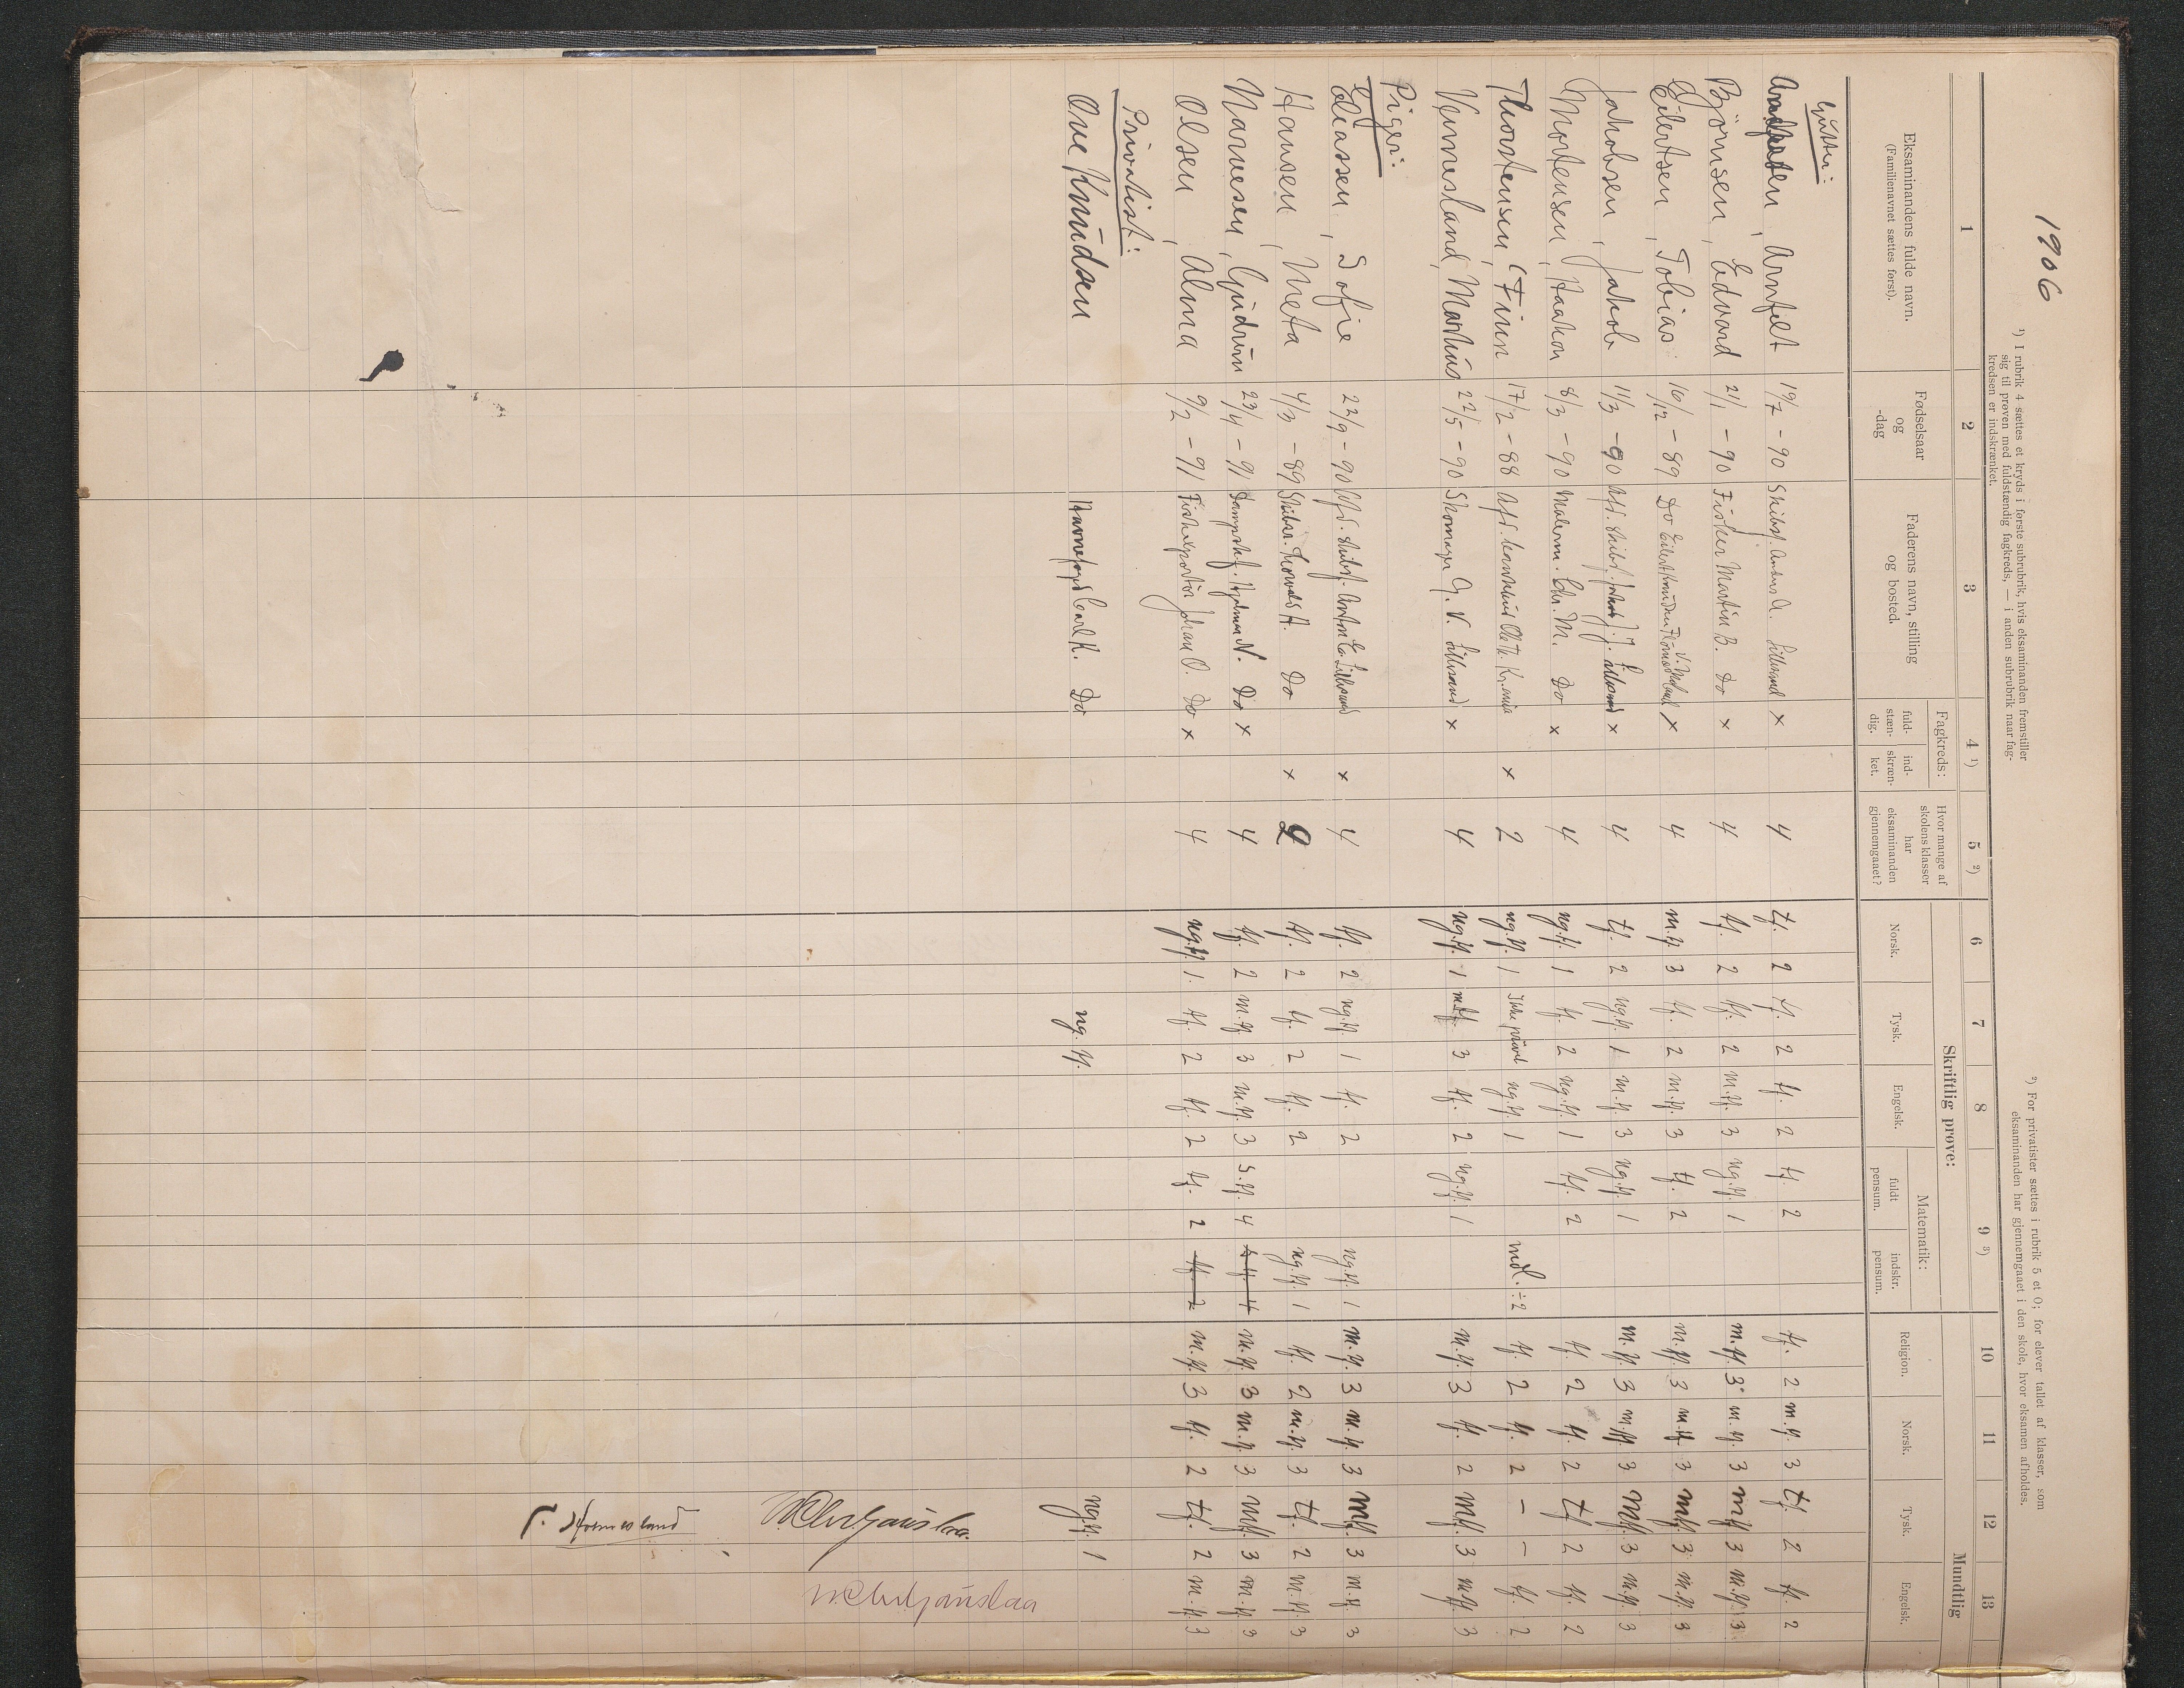 1906
¹) I rubrik 4 sættes et kryds i første subrubrik, hvis eksaminanden fremstiller
sig til prøven med fuldstændig fagkreds, — i anden subrubrik naar fag-
kredsen er indskrænket.
²) For privatister sættes i rubrik 5 et 0; for elever tallet af klasser, som
eksaminanden har gjennemgaaet i den skole, hvor eksamen afholdes.
1 2 3 4 ¹) 5 ²) 6 7 8 9 ³) 10 11 12 13
Eksaminandens fulde navn.
(Familienavnet sættes først).
Fødselsaar
og
-dag
Faderens navn, stilling
og bosted.
Fagkreds:
fuld-
stæn-
dig.
ind-
skræn-
ket.
Hvor mange af
skolens klasser
har
eksaminanden
gjennemgaaet?
Skriftlig prøve:
Norsk. Tysk. Engelsk.
Matematik:
fuldt
pensum.
indskr.
pensum.
Mundtlig
Religion. Norsk. Tysk. Engelsk.
Gutter:
Arnfelt 19/7 - 90 Lillesand x 4 tf. 2 tf. 2 tf. 2 tf. 2 tf. 2 m.tf. 3 tf. 2 tf. 2
Bjørnsen, Edvard 21/1 - 90 Fisker Martin B. Do x 4 tf. 2 tf. 2 m.tf. 3 ng.tf. 1 m.tf. 3 m.tf. 3 mtf. 3 m.tf. 3
Eilertsen, Tobias 16/12 - 89 Do Eilert x 4 m.tf. 3 tf. 2 m.tf. 3 tf. 2 m.tf. 3 m.tf. 3 mtf. 3 m.tf. 3
Jakobsen, Jakob 11/3 - 90 Afd. skibsf. J. Lillesand x 4 tf. 2 ng.tf. 1 m.tf. 3 ng.tf. 1 m.tf. 3 m.tf. 3 mtf. 3 m.tf. 3
Mortensen, Haakon 8/3 - 90 Malerm. Chr. M. Do x 4 ng.tf. 1 tf. 2 ng.tf. 1 tf. 2 tf. 2 tf. 2 tf. 2 tf. 2
Thorstensen, Finn 17/2 - 88 Afd. Ole Th. Kr.ania x 2 ng.tf. 1 Ikke prøvet ng.tf. 1 mdl. ÷2 tf. 2 tf. 2 - - tf. 2
Vennesland, Markus 22/5 - 90 Skomager G. V. Lillesand x 4 ng.tf. 1 m.tf. 3 tf. 2 ng.tf. 1 m.tf. 3 tf. 2 mtf. 3 m.tf. 3
Piger:
Eliassen, Sofie 22/9 - 90 Afd. skibsf. Anton E. Lillesand x 4 tf. 2 ng.tf. 1 tf. 2 ng.tf. 1 m.tf. 3 m.tf. 3 mtf. 3 m.tf. 3
Hansen, Meta 4/3 - 89 Thorvald H. Do x 2 tf. 2 tf. 2 tf. 2 ng.tf. 1 tf. 2 m.tf. 3 tf. 2 m.tf. 3
Narvesen, Gudrun 23/4 - 91 Dampskf. Hjalmar N. Do x 4 tf. 2 m.tf. 3 m.tf. 3 s.tf. 4 s.tf. 4 m.tf. 3 m.tf. 3 mtf. 3 m.tf. 3
Olsen, Alma 9/2 - 91 Johan O. Do x 4 ng.tf. 1. tf. 2 tf. 2 tf. 2 tf. 2 m.tf. 3 tf. 2 tf. 2 m.tf. 3
Privatist:
Ove Knudsen Havnefoged Carl K. Do ng. tf. ng.tf. 1